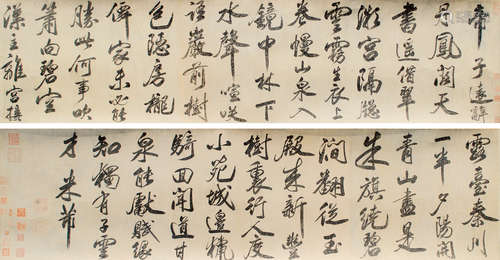 帝子遠辭
丹鳳闕天
書遥借翠
微宮隔窓
雲霧生衣上
卷幔山泉入
鏡中林下
水聲喧咲
語巖前樹
色隱房櫳
僊家未必能
勝此何事吹
簫向碧空
漢主離宮接
露臺秦川
一半夕陽開
青山盡是
朱旗繞碧
澗翻從玉
殿来新豐
樹裏行人度
小苑城邊獵
騎回聞道甘
泉能獻賦縣
知獨有子雲
才米芾